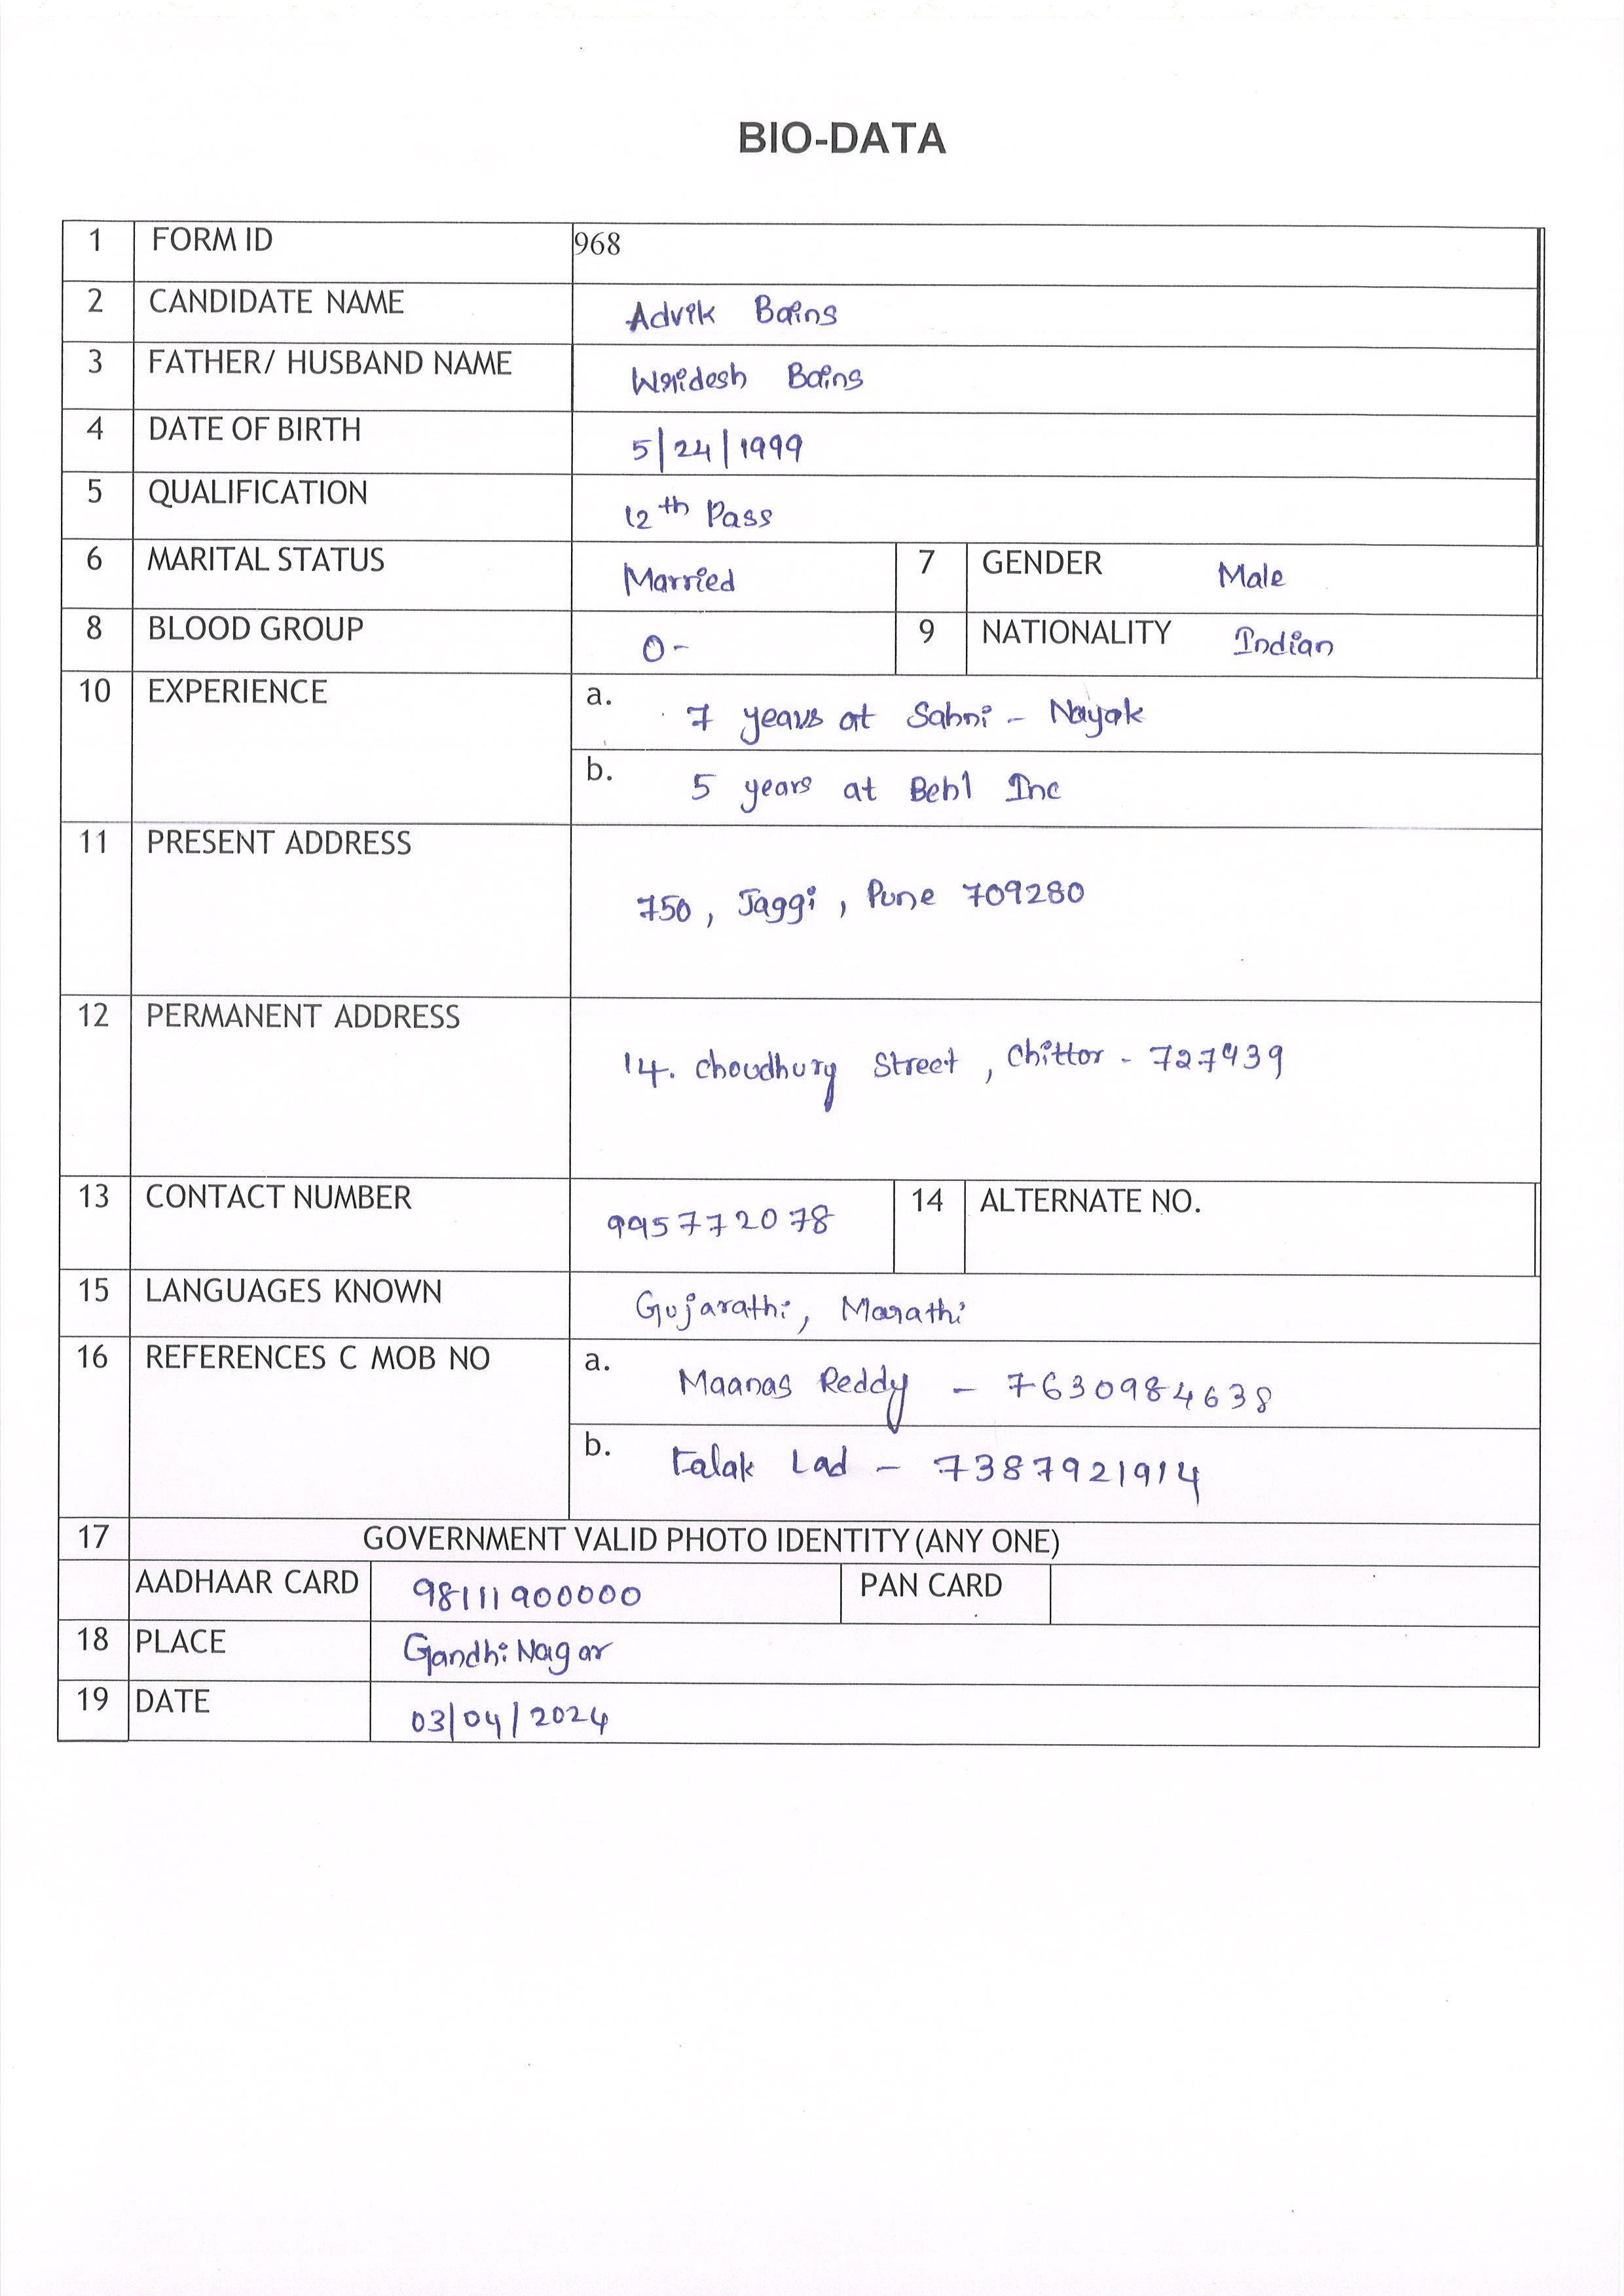 BIO-DATA
1 FORM ID 968
2 CANDIDATE NAME Advik Bains
3 FATHER/ HUSBAND NAME Wridesh Bains
4 DATE OF BIRTH 5/24/1999
5 QUALIFICATION 12th Pass
6 MARITAL STATUS Married 7 GENDER Male
8 BLOOD GROUP O- 9 NATIONALITY Indian
10 EXPERIENCE a. 7 years at Sahni - Nayak
b. 5 years at Behl Inc
11 PRESENT ADDRESS
750, Jaggi, Pune 709280
12 PERMANENT ADDRESS
14. Choudhury Street, Chittor - 727939
13 CONTACT NUMBER 995772078 14 ALTERNATE NO.
15 LANGUAGES KNOWN Gujarathi, Marathi
16 REFERENCES C MOB NO a. Maanas Reddy - 7630984638
b. Falak Lad - 7387921914
17 GOVERNMENT VALID PHOTO IDENTITY (ANY ONE)
AADHAAR CARD 98111900000 PAN CARD
18 PLACE Gandhi Nagar
19 DATE 03/04/2024